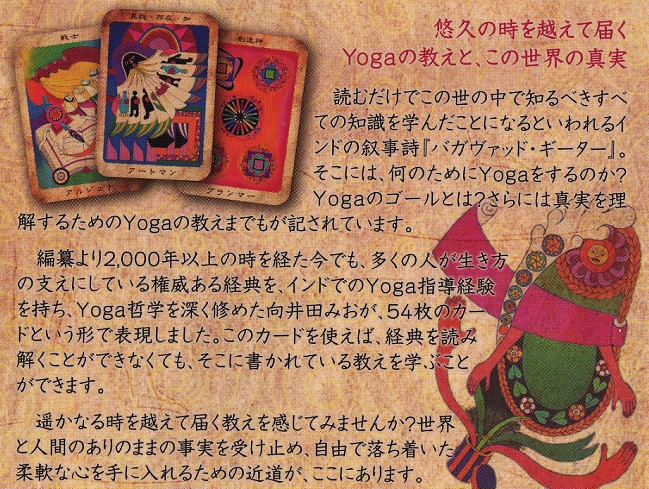 戦士
アルジュナ
真我・存在・知
アートマン
創造神
ブラフマー
悠久の時を越えて届く
Yogaの教えと、この世界の真実
読むだけでこの世の中で知るべきすべ
ての知識を学んだことになるといわれるイ
ンドの叙事詩『バガヴァッド・ギーター』。
そこには、何のためにYogaをするのか?
Yogaのゴールとは?さらには真実を理
解するためのYogaの教えまでもが記されています。
編纂より2,000年以上の時を経た今でも、多くの人が生き方
の支えにしている権威ある経典を、インドでのYoga指導経験
を持ち、Yoga哲学を深く修めた向井田みおが、54枚のカー
ドという形で表現しました。このカードを使えば、経典を読み
解くことができなくても、そこに書かれている教えを学ぶこと
ができます。
遥かなる時を越えて届く教えを感じてみませんか?世界
と人間のありのままの事実を受け止め、自由で落ち着いた
柔軟な心を手に入れるための近道が、ここにあります。